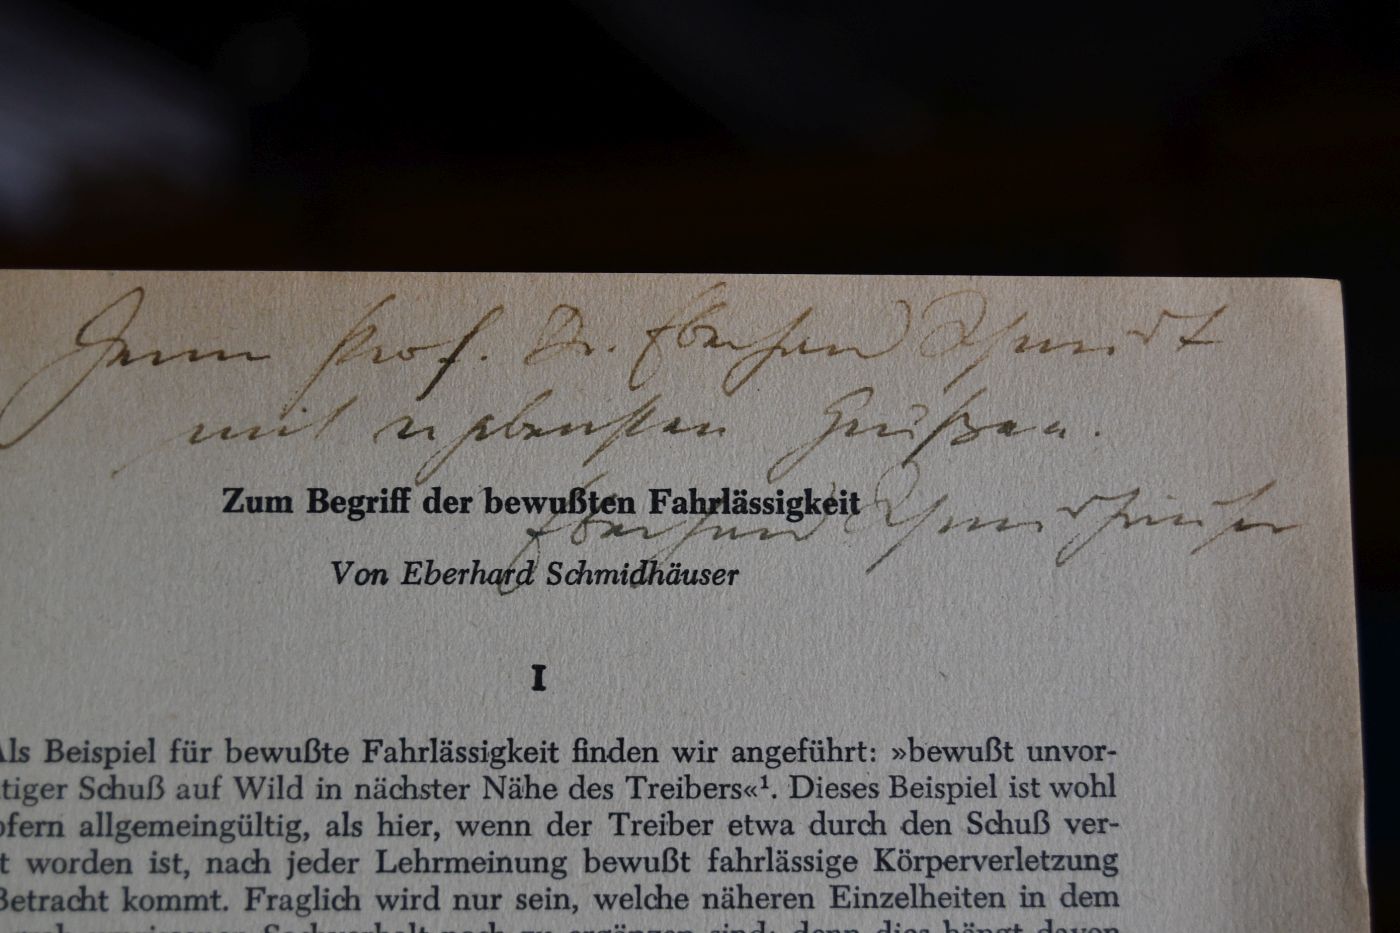 Herrn Prof. Dr. Eberhard Schmidt
mit ergebensten Grüßen.
Eberhard Schmidhäuser
Zum Begriff der bewußten Fahrlässigkeit
Von Eberhard Schmidhäuser
I
Als Beispiel für bewußte Fahrlässigkeit finden wir angeführt: »bewußt unvor-
tiger Schuß auf Wild in nächster Nähe des Treibers«¹. Dieses Beispiel ist wohl
ofern allgemeingültig, als hier, wenn der Treiber etwa durch den Schuß ver-
t worden ist, nach jeder Lehrmeinung bewußt fahrlässige Körperverletzung
Betracht kommt. Fraglich wird nur sein, welche näheren Einzelheiten in dem
Sachverhalt noch zu ergänzen sind; denn dies hängt davon